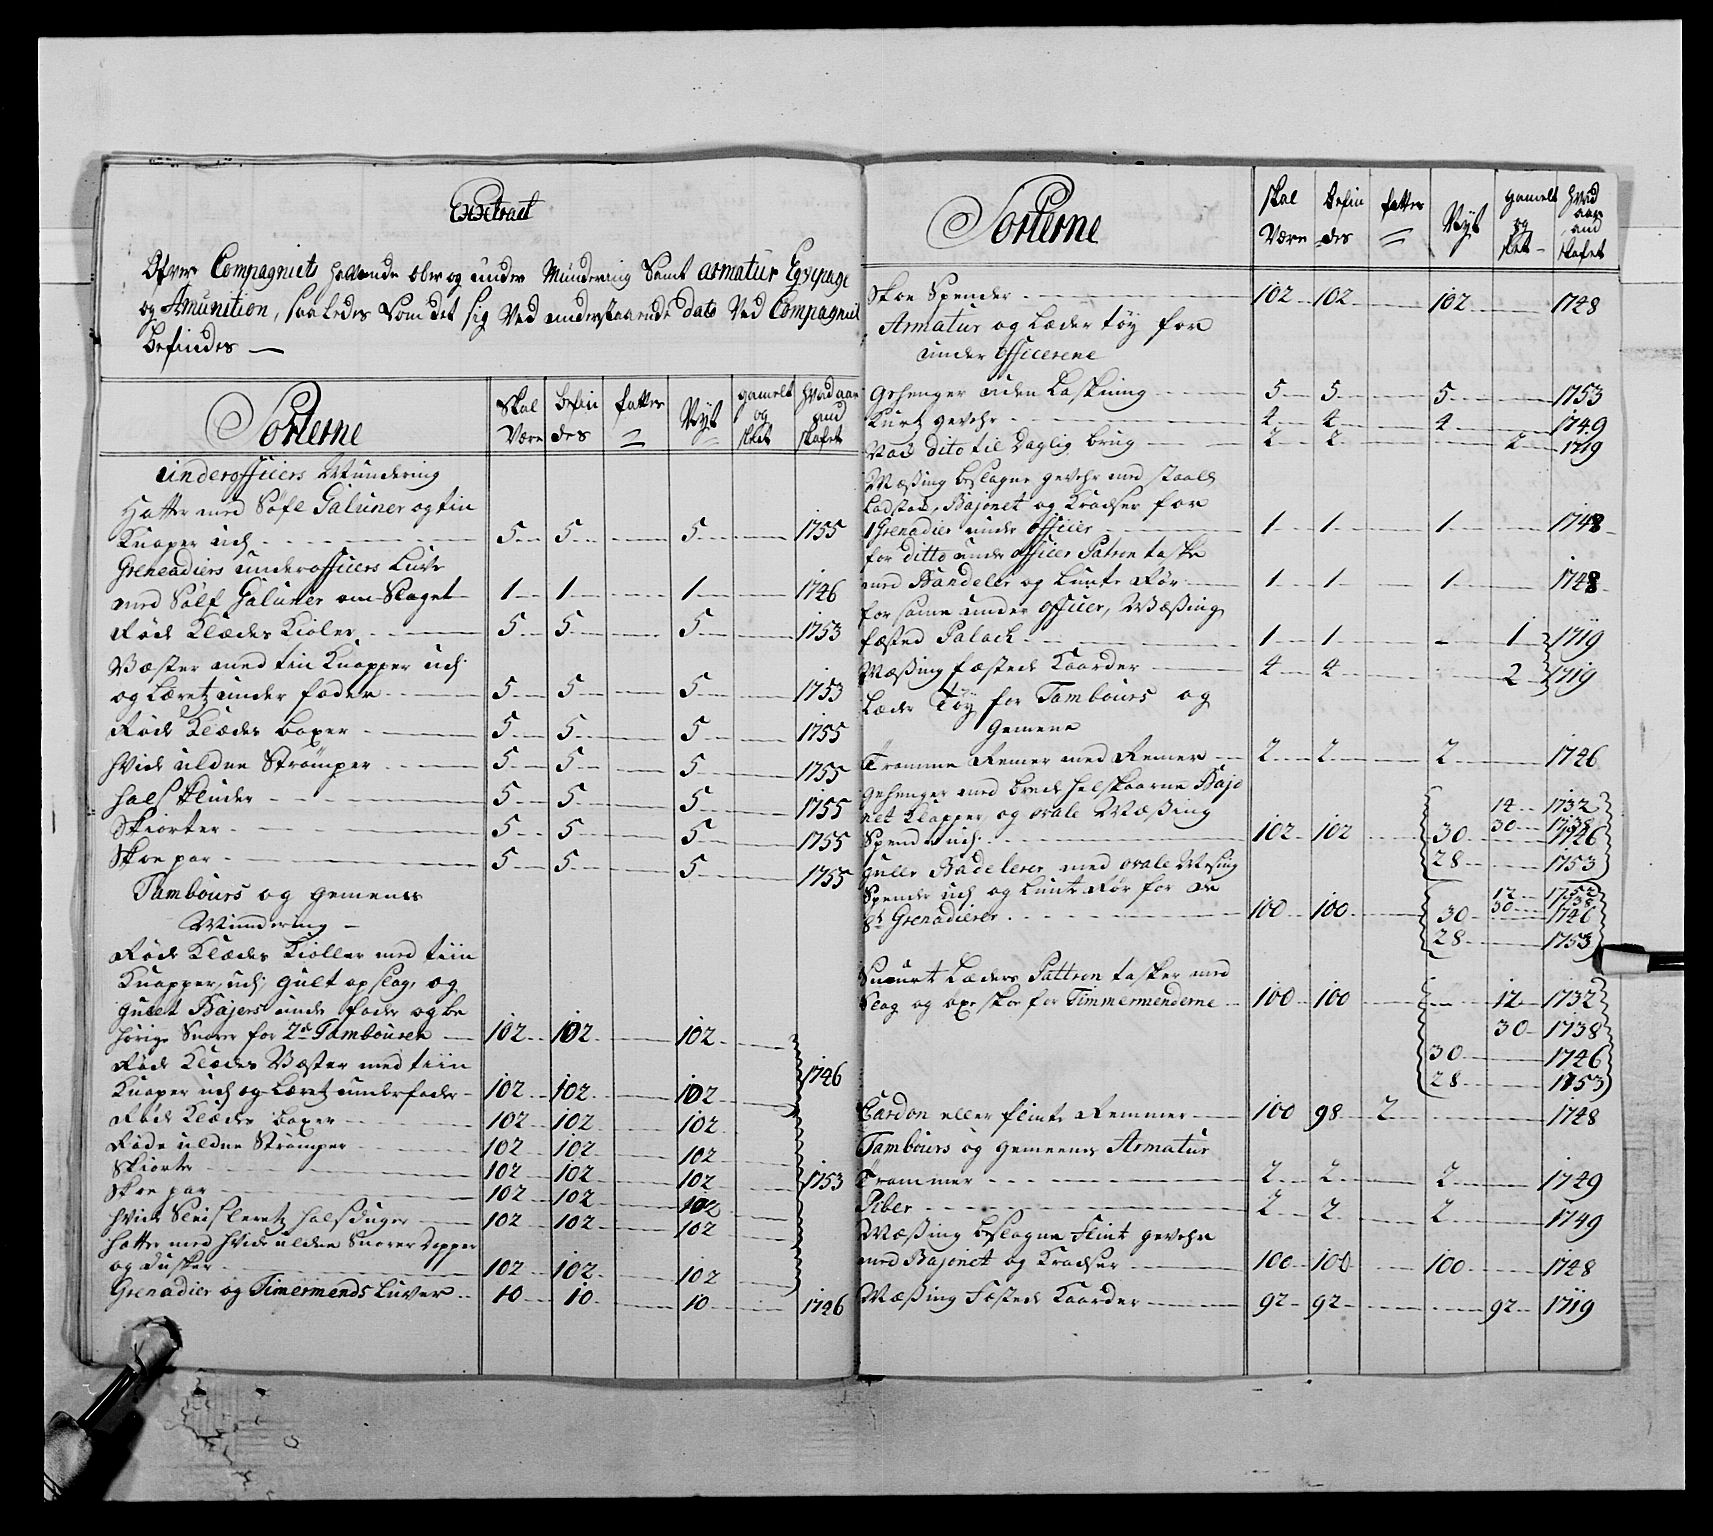 Extract
Ofver Compagniets hafvende ober og under Mundering Samt armatur Eqvipage
og Amunition, saaledes Som det sig Ved understaaende dato Ved Compagniet
Befindes —
Sorterne | Skal Være | Befindes | fattes | Nÿt | gamelt og slet | Hvad aar and skafet
underofficers Mundering
Hatte med Sølf Galuner og tin
Knaper udi | 5 | 5 | | 5 | | 1755
Greneadiers underofficers Luve
med Sølf Galuner om Slaget | 1 | 1 | | 1 | | 1746
Røde Klædes Kioler | 5 | 5 | | 5 | | 1753
Væster med tin Knapper udi
og Læretz under foder | 5 | 5 | | 5 | | 1753
Røde Klædes boxer | 5 | 5 | | 5 | | 1755
Hvide uldne Strømper | 5 | 5 | | 5 | | 1755
hals Kluder | 5 | 5 | | 5 | | 1755
Skiorter | 5 | 5 | | 5 | | 1755
Skoe par | 5 | 5 | | 5 | | 1755
Tambours og gemenes
Mundering —
Røde Klædes Kioller med tiin
Knapper, udi gult opslag, og
guelt Bajers under foder og be
hørige Snorer for 2de Tambourer | 102 | 102 | | 102
Røde Klædes Væster med tiin
Knaper udi og Læret underfoder | 102 | 102 | | 102 | | 1746
Røde Klædes boxer | 102 | 102 | | 102
Røde uldne Strømper | 102 | 102 | | 102
Skiorte | 102 | 102 | | 102 | | 1753
Skoe par | 102 | 102 | | 102
Hvide Sleisleretz Halsduger | 102 | 102 | | 102
Hatte med Hvide uldne Snorer
og duske | 102 | 102 | | 102
Grenadier og Timermends Luver | 10 | 10 | | 10 | | 1746
Sorterne | skal Være | Befindes | fattes | Nÿt | gamelt og slet | Hvad aar and skafet
Skoe Spender | 102 | 102 | | 102 | | 1748
Armatur og Læder tøy for
under officerene
Gehenger uden Laskning | 5 | 5 | | 5 | | 1753
Kurt gevehr | 4 | 4 | | 4 | | 1749
Nok dito til Daglig brug | 2 | 2 | | | 2 | 1719
Mæßing beslagne gevehr med staale
Ladstok, Bajonet og Kradser for
1 Grenadier under officer | 1 | 1 | | 1 | | 1748
for ditto under officer Patron taske
med Bandeler og Lunte Rør | 1 | 1 | | 1 | | 1748
for same under officer, Mæßing
fæsted Palack | 1 | 1 | | - | 1 | 1719
Mæßing fæstede Kaarder | 4 | 4 | | | 2 | 1719
Læder Tøÿ for Tambours og
Gemene
Tromme Remer med Remer | 2 | 2 | | 2 | | 1746
gehenger med brede helskaarne Bajo
net Klapper og ovale Mæßing | | | | | 14 | 1732
| | | | | 30 | 1738
Spender udi | 102 | 102 | | 30 | | 1746
| | | | 28 | | 1753
gulle Badelerer med ovale Mesing
Spender udi og Lunte Rør for de | | | | | 12 | 1732
| | | | | 30 | 1738
8te Grenadierer | 100 | 100 | | 30 | | 1746
| | | | 28 | | 1753
Suurt Læders Pattron tasker med
Slag og axe skoe for Timmermenderne | 100 | 100 | | — | 12 | 1732
| | | | | 30 | 1738
| | | | 30 | | 1746
| | | | 28 | | 1753
Cardon eller flinte Remmer | 100 | 98 | 2 | | | 1748
Tambours og Gemeenes Armatur
Trommer | 2 | 2 | | 2 | | 1749
Piber | 2 | 2 | | 2 | | 1749
Mæßing beslagne Flint gevehr
med Bajonet og Kradser | 100 | 100 | | 100 | | 1748
Mæßing Fæstede Kaarder | 92 | 92 | | | 92 | 1719